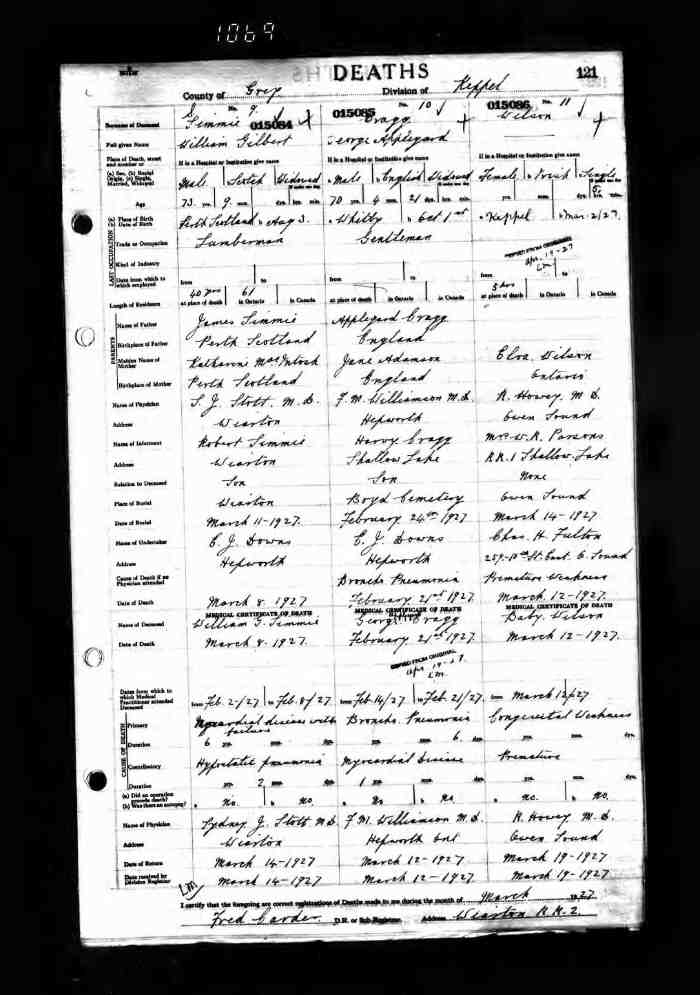 1069
DEATHS
121
County of Grey Division of Keppel
No. 9 015084 015085 No. 10 015086 No. 11
Surname of Deceased Simmie Cragg Wilson
Full given Name William Gilbert George Applegard
Place of Death, street and number or If in a Hospital or Institution give name If in a Hospital or Institution give name If in a Hospital or Institution give name
(a) Sex, (b) Racial Origin, (c) Single, Married, Widowed Male Scotch Widowed Male English Widowed Female Irish Single
Age 73 yrs. 9 mos. dys. hrs. min. 70 yrs. 4 mos. 21 dys. hrs. min. yrs. mos. dys. 5 hrs. min.
(a) Place of Birth (b) Date of Birth Perth Scotland Aug 3. Whitby Oct 1st Keppel Mar. 12/27
LAST OCCUPATION
Trade or Occupation Lumberman Gentleman
Kind of Industry
COPIED FROM ORIGINAL
Apr. 19-27
Lm
Date from which to which employed from to from to from to
Length of Residence 40 yrs at place of death 61 in Ontario in Canada at place of death in Ontario in Canada 5 hrs at place of death in Ontario in Canada
PARENTS
Name of Father James Simmie Applegard Cragg
Birthplace of Father Perth Scotland England
Maiden Name of Mother Katharine MacIntosh Jane Adamson Elva Wilson
Birthplace of Mother Perth Scotland England Ontario
Name of Physician S. J. Stott, M.D. F. M. Williamson M.D. R. Howey M.D.
Address Wiarton Hepworth Owen Sound
Name of Informant Robert Simmie Harvy Cragg Mrs W. R. Parsons
Address Wiarton Shallow Lake R R. 1 Shallow Lake
Relation to Deceased Son Son None
Place of Burial Wiarton Boyd Cemetery Owen Sound
Date of Burial March 11-1927. February 24th 1927 March 14-1927
Name of Undertaker E. J. Downs E. J. Downs Chas. H. Fulton
Address Hepworth Hepworth 259-10th St. East. O. Sound
Cause of Death if no Physician attended Broncho Pneumonia Premature Weakness
Date of Death March 8 1927 February 21st 1927. March 12-1927.
MEDICAL CERTIFICATE OF DEATH MEDICAL CERTIFICATE OF DEATH MEDICAL CERTIFICATE OF DEATH
Name of Deceased William G. Simmie George Cragg Baby Wilson
Date of Death March 8-1927. February 21st 1927. March 12-1927.
COPIED FROM ORIGINAL
Apr 19-27.
Lm.
Dates from which to which Medical Practitioner attended Deceased from Feb. 2-/27 to Feb. 8/27 from Feb. 14/27 to Feb. 21/27 from March 12/27
CAUSE OF DEATH
Primary Myocardial disease with failure Broncho Pneumonia Congenital Weakness
Duration 6 yrs. mos. dys. yrs. mos. 6. dys. yrs. mos. dys.
Contributory Hypostatic pneumonia Myocardial Disease Premature
Duration yrs. 2 mos. dys. 1 yrs. mos. dys. yrs. mos. dys.
(a) Did an operation precede death? (b) Was there an autopsy? a no. b no. a No b no a no. b no.
Name of Physician Sydney J. Stott M.D. F. M. Williamson M.D. R. Howey M.D.
Address Wiarton Hepworth Ont Owen Sound
Date of Return March 14-1927 March 12-1927 March 19-1927
Date received by Division Registrar March 14-1927 March 12-1927 March 19-1927
Lm
I certify that the foregoing are correct registrations of Deaths made to me during the month of March 1927
Fred Carder. D.R. or Sub-Registrar Address Wiarton R.R.2.